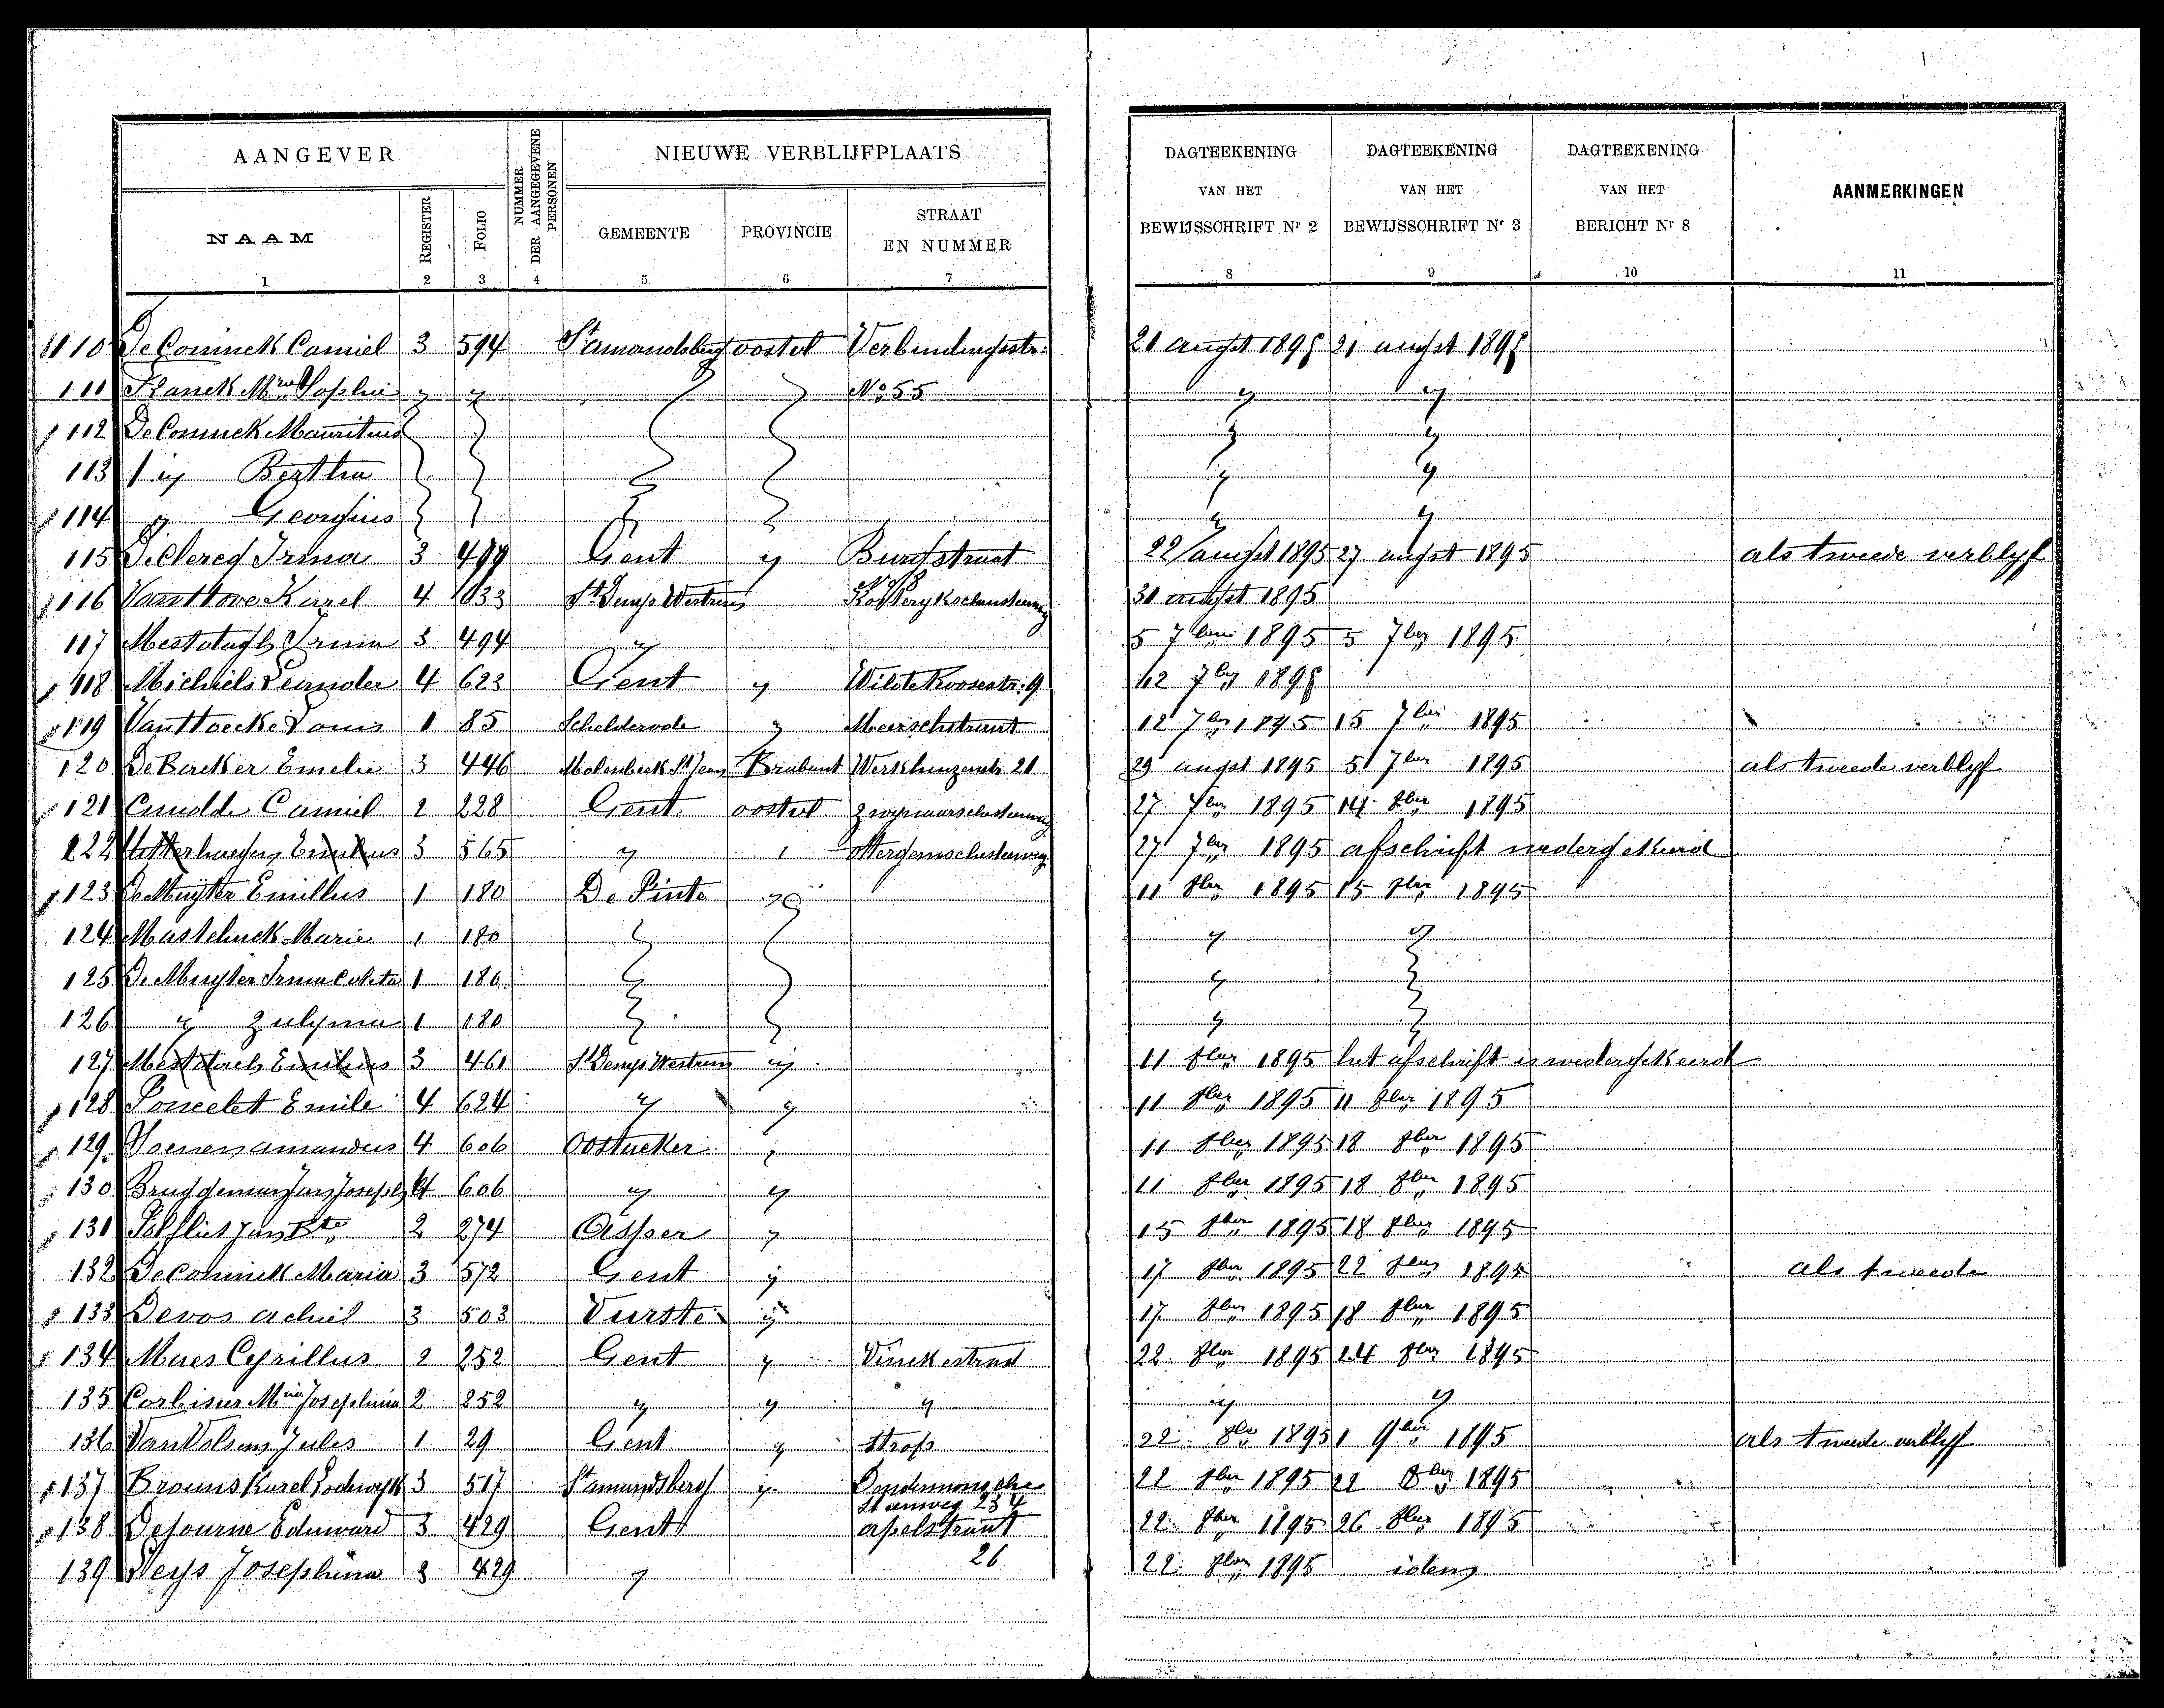 AANGEVER
NUMMER DER AANGEGEVENE PERSONEN
NIEUWE VERBLIJFPLAATS
DAGTEEKENING VAN HET BEWIJSSCHRIFT Nr 2
DAGTEEKENING VAN HET BEWIJSSCHRIFT Nr 3
DAGTEEKENING VAN HET BERICHT Nr 8
AANMERKINGEN
NAAM REGISTER FOLIO GEMEENTE PROVINCIE STRAAT EN NUMMER
1 2 3 4 5 6 7 8 9 10 11
110 De Coninck Camiel 3 594 St Amandsberg oostvl Verbindingsstr. 21 augst 1895 21 augst 1895
111 Sophie No 55
112 De Coninck Mauritius
113 Bertha
114 Georgius
115 Declercq Irma 3 499 Gent Burgstraat 22 augst 1895 27 augst 1895 als tweede verblyf
116 Vanhove Karel 4 633 St Denys Westrem 31 augst 1895
117 Mestdagh Irma 3 494 5 7ber 1895 5 7ber 1895
118 Michiels Leander 4 623 Gent Wilde Roosestr. 9 12 7ber 1895
119 Van Hoecke Louis 1 85 Schelderode Meirschstraat 12 7ber 1895 15 7ber 1895
120 De Backer Emelie 3 446 Molenbeek St Jean Brabant 21 29 augst 1895 7ber 1895 als tweede verblyf
121 Camiel 2 228 Gent oostvl 27 7ber 1895 14 8ber 1895
122 3 565 27 7ber 1895 afschrift wedergekeerd
123 De Muyter Emillus 1 180 De Pinte 11 8ber 1895 15 8ber 1895
124 Marie 1 180
125 De Muyter Irma Coleta 1 180
126 Zulyma 1 180
127 Mestdach Emilius 3 461 St Denys Westrem 11 8ber 1895 het afschrift is wedergekeerd
128 Poncelet Emile 4 624 11 8ber 1895 11 8ber 1895
129 Amandus 4 606 Oostacker 11 8ber 1895 18 8ber 1895
130 Bruggeman Joseph 4 606 11 8ber 1895 18 8ber 1895
131 Jan Bte 2 274 15 8ber 1895 18 8ber 1895
132 De Coninck Maria 3 572 Gent 17 8ber 1895 22 8ber 1895 als tweede
133 Devos Achiel 3 503 Vurste 17 8ber 1895 18 8ber 1895
134 Maes Cyrillus 2 252 Gent Vinkestraat 22 8ber 1895 24 8ber 1895
135 Corbisier Josephina 2 252
136 Van Volsem Jules 1 29 Gent 22 8ber 1895 1 9ber 1895 als tweede verblyf
137 Brouns Karel Lodewyk 3 517 St Amandsberg Dendermonsche 22 8ber 1895 22 8ber 1895
steenweg 234
138 Defourne Eduward 3 429 Gent Apelstraat 22 8ber 1895 26 8ber 1895
26
139 Neys Josephina 3 429 22 8ber 1895 idem